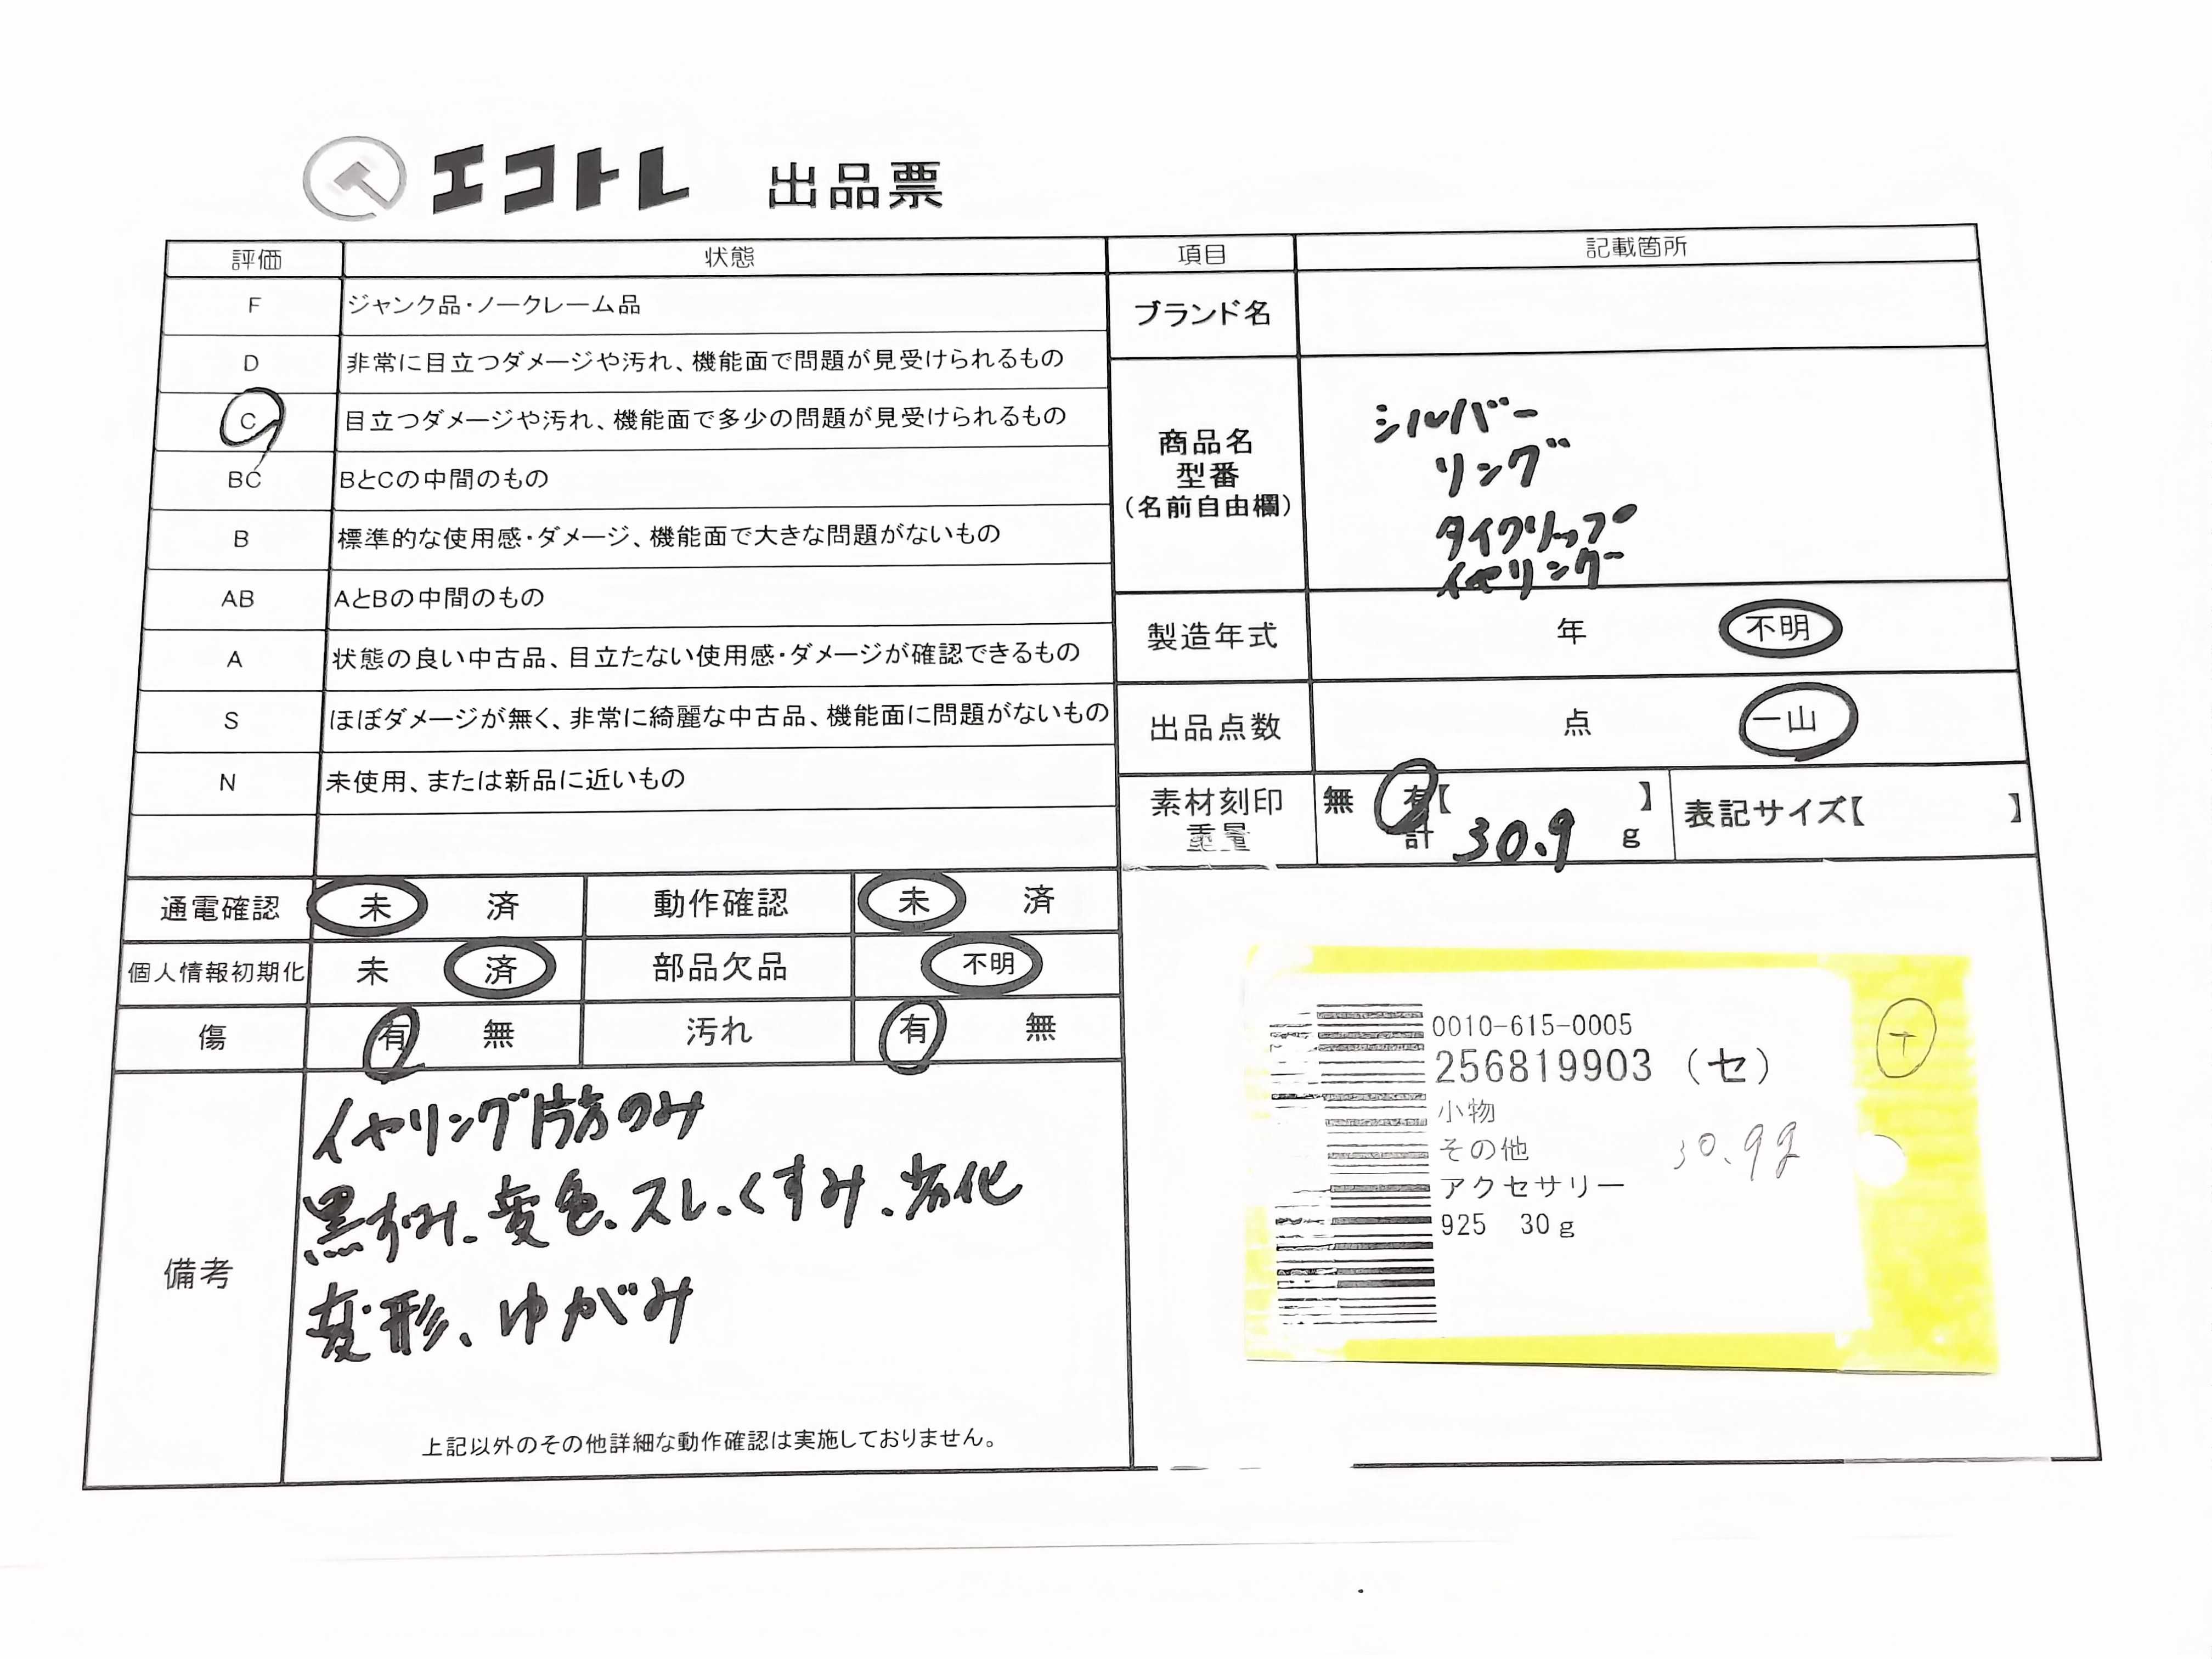 エコトレ 出品票
評価 状態 項目 記載箇所
F ジャンク品・ノークレーム品
D 非常に目立つダメージや汚れ、機能面で問題が見受けられるもの
C 目立つダメージや汚れ、機能面で多少の問題が見受けられるもの
BC BとCの中間のもの
B 標準的な使用感・ダメージ、機能面で大きな問題がないもの
AB AとBの中間のもの
A 状態の良い中古品、目立たない使用感・ダメージが確認できるもの
S ほぼダメージが無く、非常に綺麗な中古品、機能面に問題がないもの
N 未使用、または新品に近いもの
ブランド名
商品名
型番
(名前自由欄)
シルバー
リング
タイクリップ
イヤリング
製造年式 年 不明
出品点数 点 一山
素材刻印 無 有【 】 表記サイズ【 】
重量 計 30.9 g
通電確認 未 済 動作確認 未 済
個人情報初期化 未 済 部品欠品 不明
傷 有 無 汚れ 有 無
備考
イヤリング片方のみ
黒ずみ、変色、スレ、くすみ、劣化
変形、ゆがみ
上記以外のその他詳細な動作確認は実施しておりません。
0010-615-0005
256819903 (セ)
小物
その他
30.9g
アクセサリー
925 30g